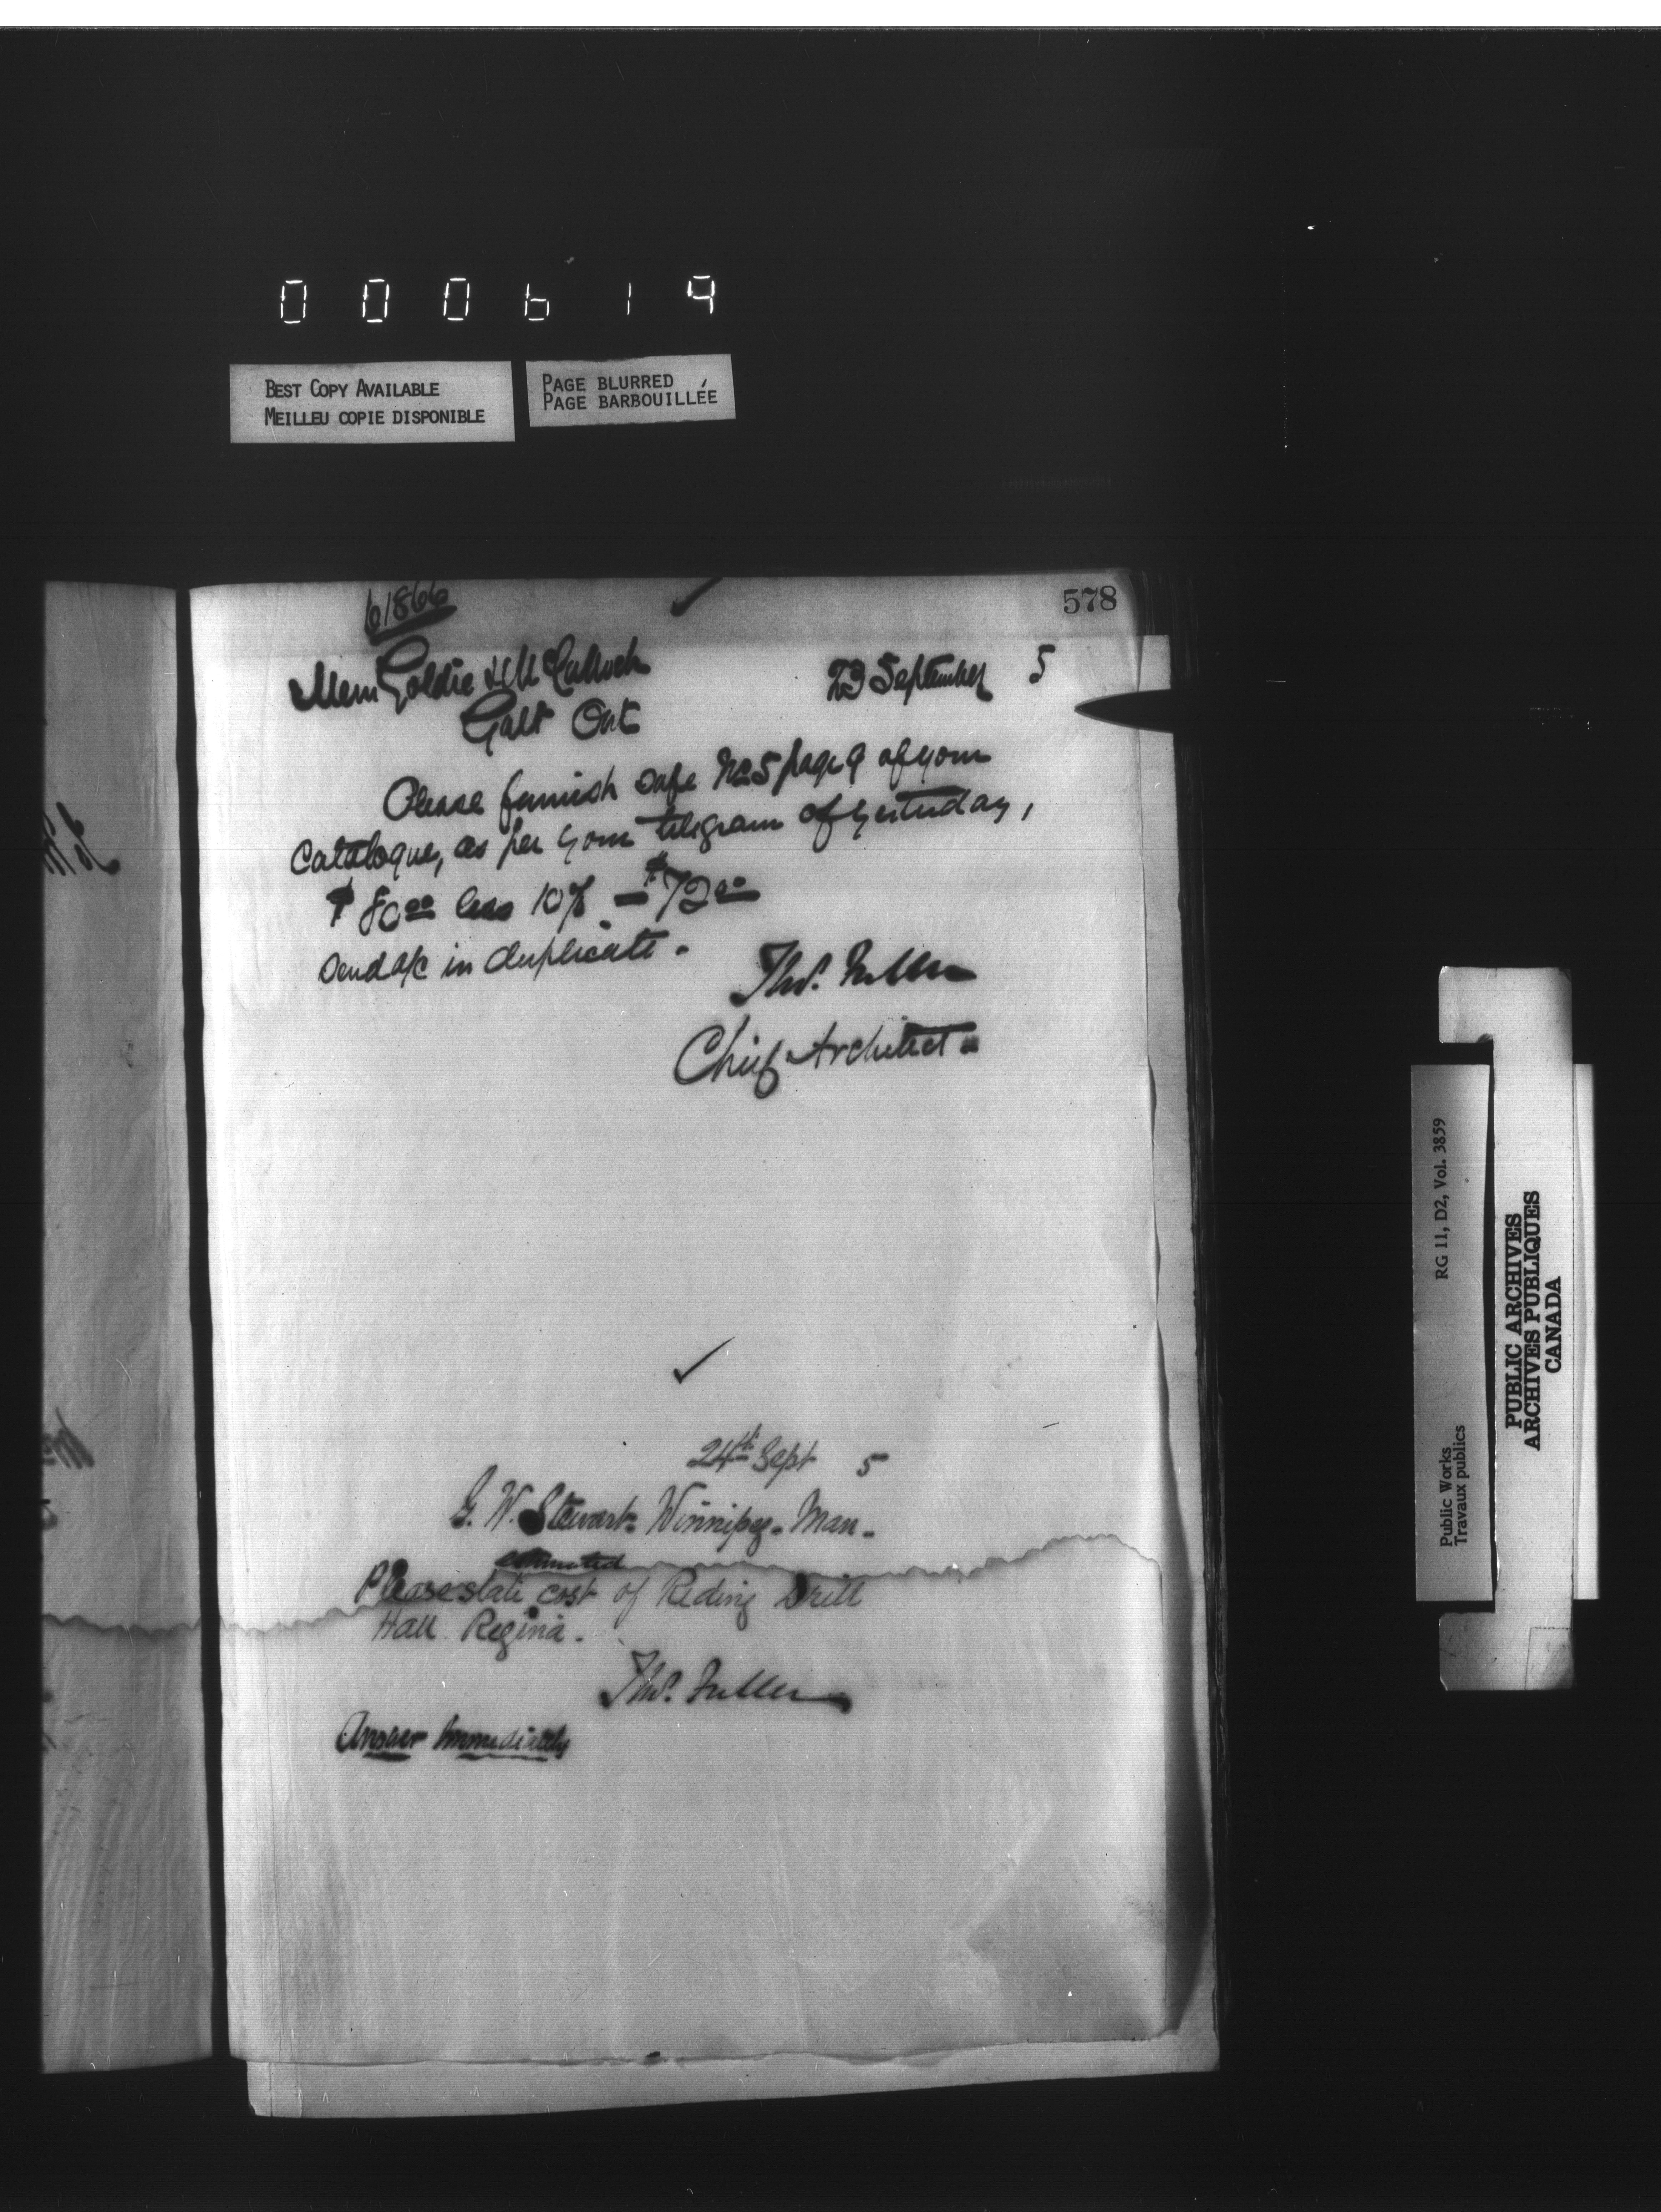 000619
BEST COPY AVAILABLE
MEILLEU COPIE DISPONIBLE
PAGE BLURRED
PAGE BARBOUILLÉE
578
61866
Messrs Goldie & McCulloch
23 September 5
Galt Ont
Please furnish safe No 5 page 9 of your
Catalogue, as per your telegram of yesterday,
$80.00 less 10% = $72.00
Send a/c in duplicate.
Thos. Fuller
Chief Architect
24th Sept 5
G. W. Stewart - Winnipeg - Man -
estimated
Please state cost of Riding Drill
Hall Regina.
Thos. Fuller
Answer Immediately
Public Works
Travaux publics
RG 11, D2, Vol. 3859
PUBLIC ARCHIVES
ARCHIVES PUBLIQUES
CANADA